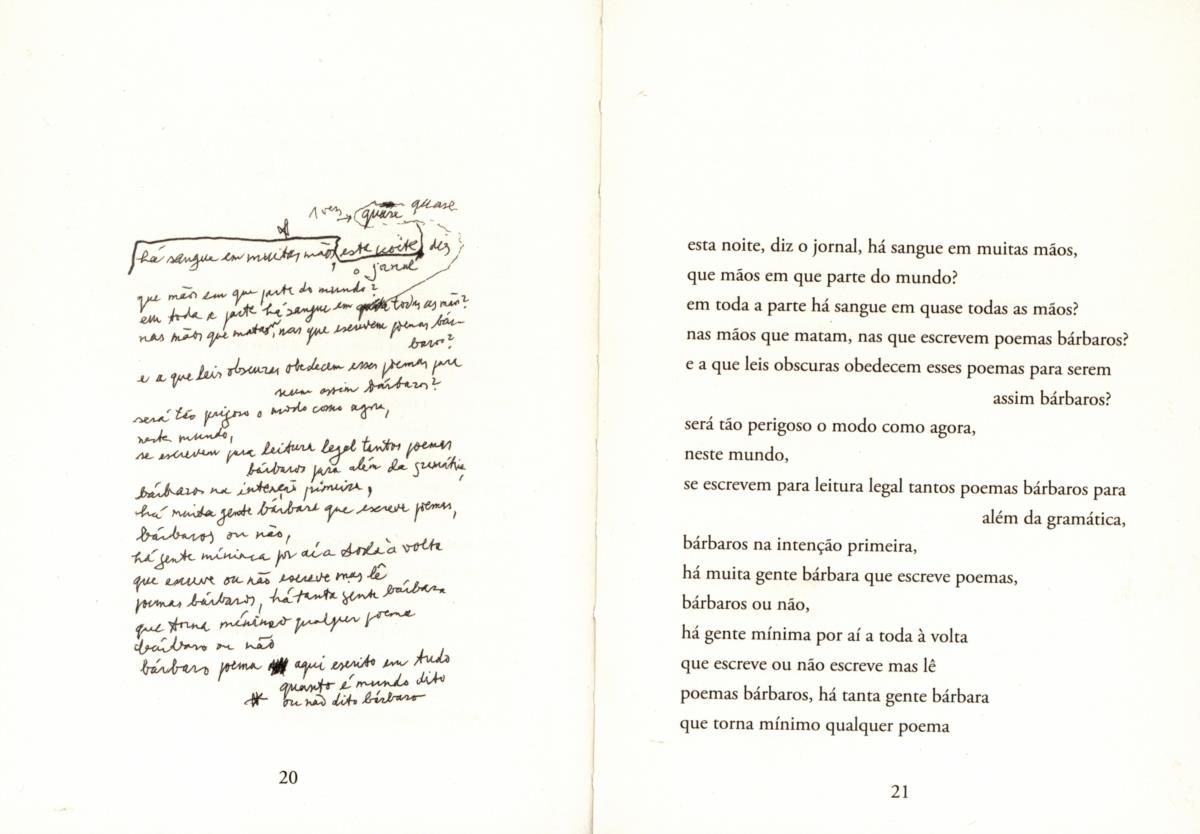 1 vez → quase quase
há sangue em muitas mãos, esta noite, diz
o jornal
que mãos em que parte do mundo?
em toda a parte há sangue em todas as mãos?
nas mãos que matam, nas que escrevem poemas bár-
baros?
e a que leis obscuras obedecem esses poemas para
serem assim bárbaros?
será tão perigoso o modo como agora,
neste mundo,
se escrevem para leitura legal tantos poemas
bárbaros para além da gramática,
bárbaros na intenção primeira,
há muita gente bárbara que escreve poemas,
bárbaros ou não,
há gente mínima por aí a toda à volta
que escreve ou não escreve mas lê
poemas bárbaros, há tanta gente bárbara
que torna mínimo qualquer poema
bárbaro ou não
bárbaro poema aqui escrito em tudo
quanto é mundo dito
* ou não dito bárbaro
20
esta noite, diz o jornal, há sangue em muitas mãos,
que mãos em que parte do mundo?
em toda a parte há sangue em quase todas as mãos?
nas mãos que matam, nas que escrevem poemas bárbaros?
e a que leis obscuras obedecem esses poemas para serem
assim bárbaros?
será tão perigoso o modo como agora,
neste mundo,
se escrevem para leitura legal tantos poemas bárbaros para
além da gramática,
bárbaros na intenção primeira,
há muita gente bárbara que escreve poemas,
bárbaros ou não,
há gente mínima por aí a toda à volta
que escreve ou não escreve mas lê
poemas bárbaros, há tanta gente bárbara
que torna mínimo qualquer poema
21